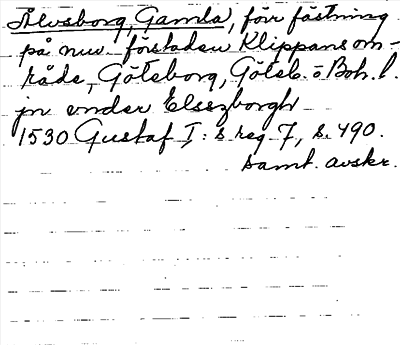 Älvsborg, Gamla, förr fästning
på nuv. förstaden Klippans om-
råde, Göteborg, Göteb. o Boh. l.
jn under Elsszborgh
1530 Gustaf I:s reg 7, s. 490.
samt. avskr.